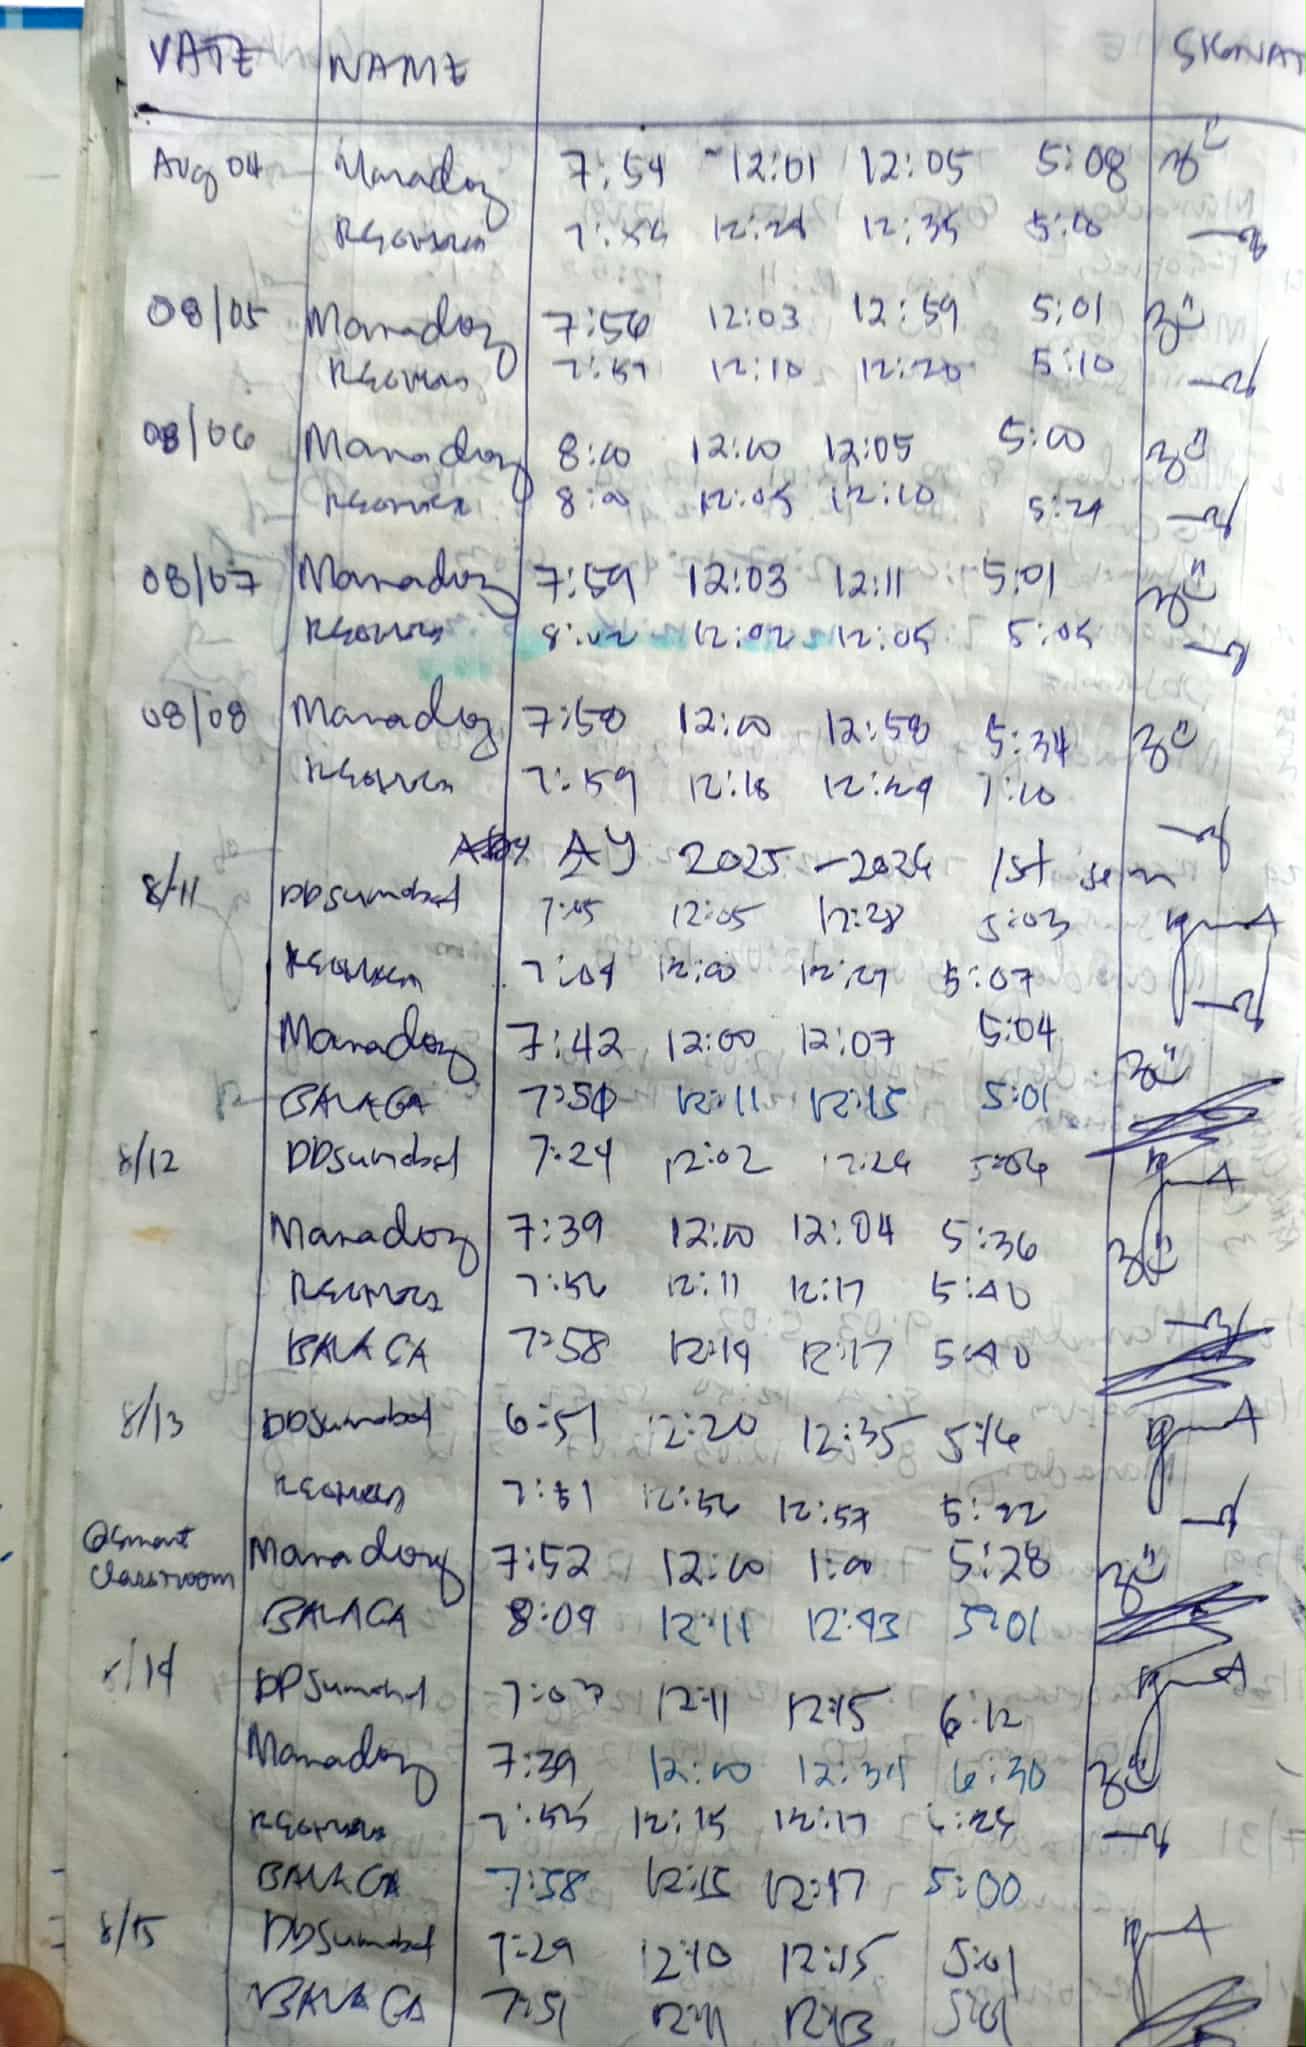 DATE NAME SIGNAT
Aug 04 Manadog 7:54 12:01 12:05 5:08
12:35 5:10
08/05 Manadog 7:56 12:03 12:59 5:01
12:10 12:20 5:10
08/06 Manadog 8:00 12:00 12:05 5:00
8:00 12:05 12:10 5:29
08/07 Manadog 7:59 12:03 12:11 5:01
8:02 12:02 12:05 5:05
08/08 Manadog 7:58 12:00 12:58 5:34
7:59 12:18 7:10
AY 2025-2026 1st sem
8/11 DDSumabat 7:05 12:05 12:28 5:03
7:09 12:00 12:27 5:07
Manadog 7:42 12:00 12:07 5:04
BALAGA 12:11 12:15 5:01
8/12 DDSumabat 7:24 12:02 12:26 5:06
Manadog 7:39 12:00 12:04 5:36
7:56 12:11 12:17 5:40
BALAGA 7:58 12:14 12:17 5:40
8/13 DDSumabat 6:51 12:20 12:35 5:16
7:51 12:56 12:57 5:22
@Smart
classroom Manadog 7:52 12:00 1:00 5:28
BALAGA 8:09 12:11 12:43 5:01
8/14 DDSumabat 7:03 12:11 12:15 6:12
Manadog 7:39 12:00 12:34 6:30
7:55 12:15 12:17
BALAGA 7:58 12:15 12:17 5:00
8/15 DDSumabat 7:29 12:10 12:15 5:01
BALAGA 7:51 12:11 12:13 5:01